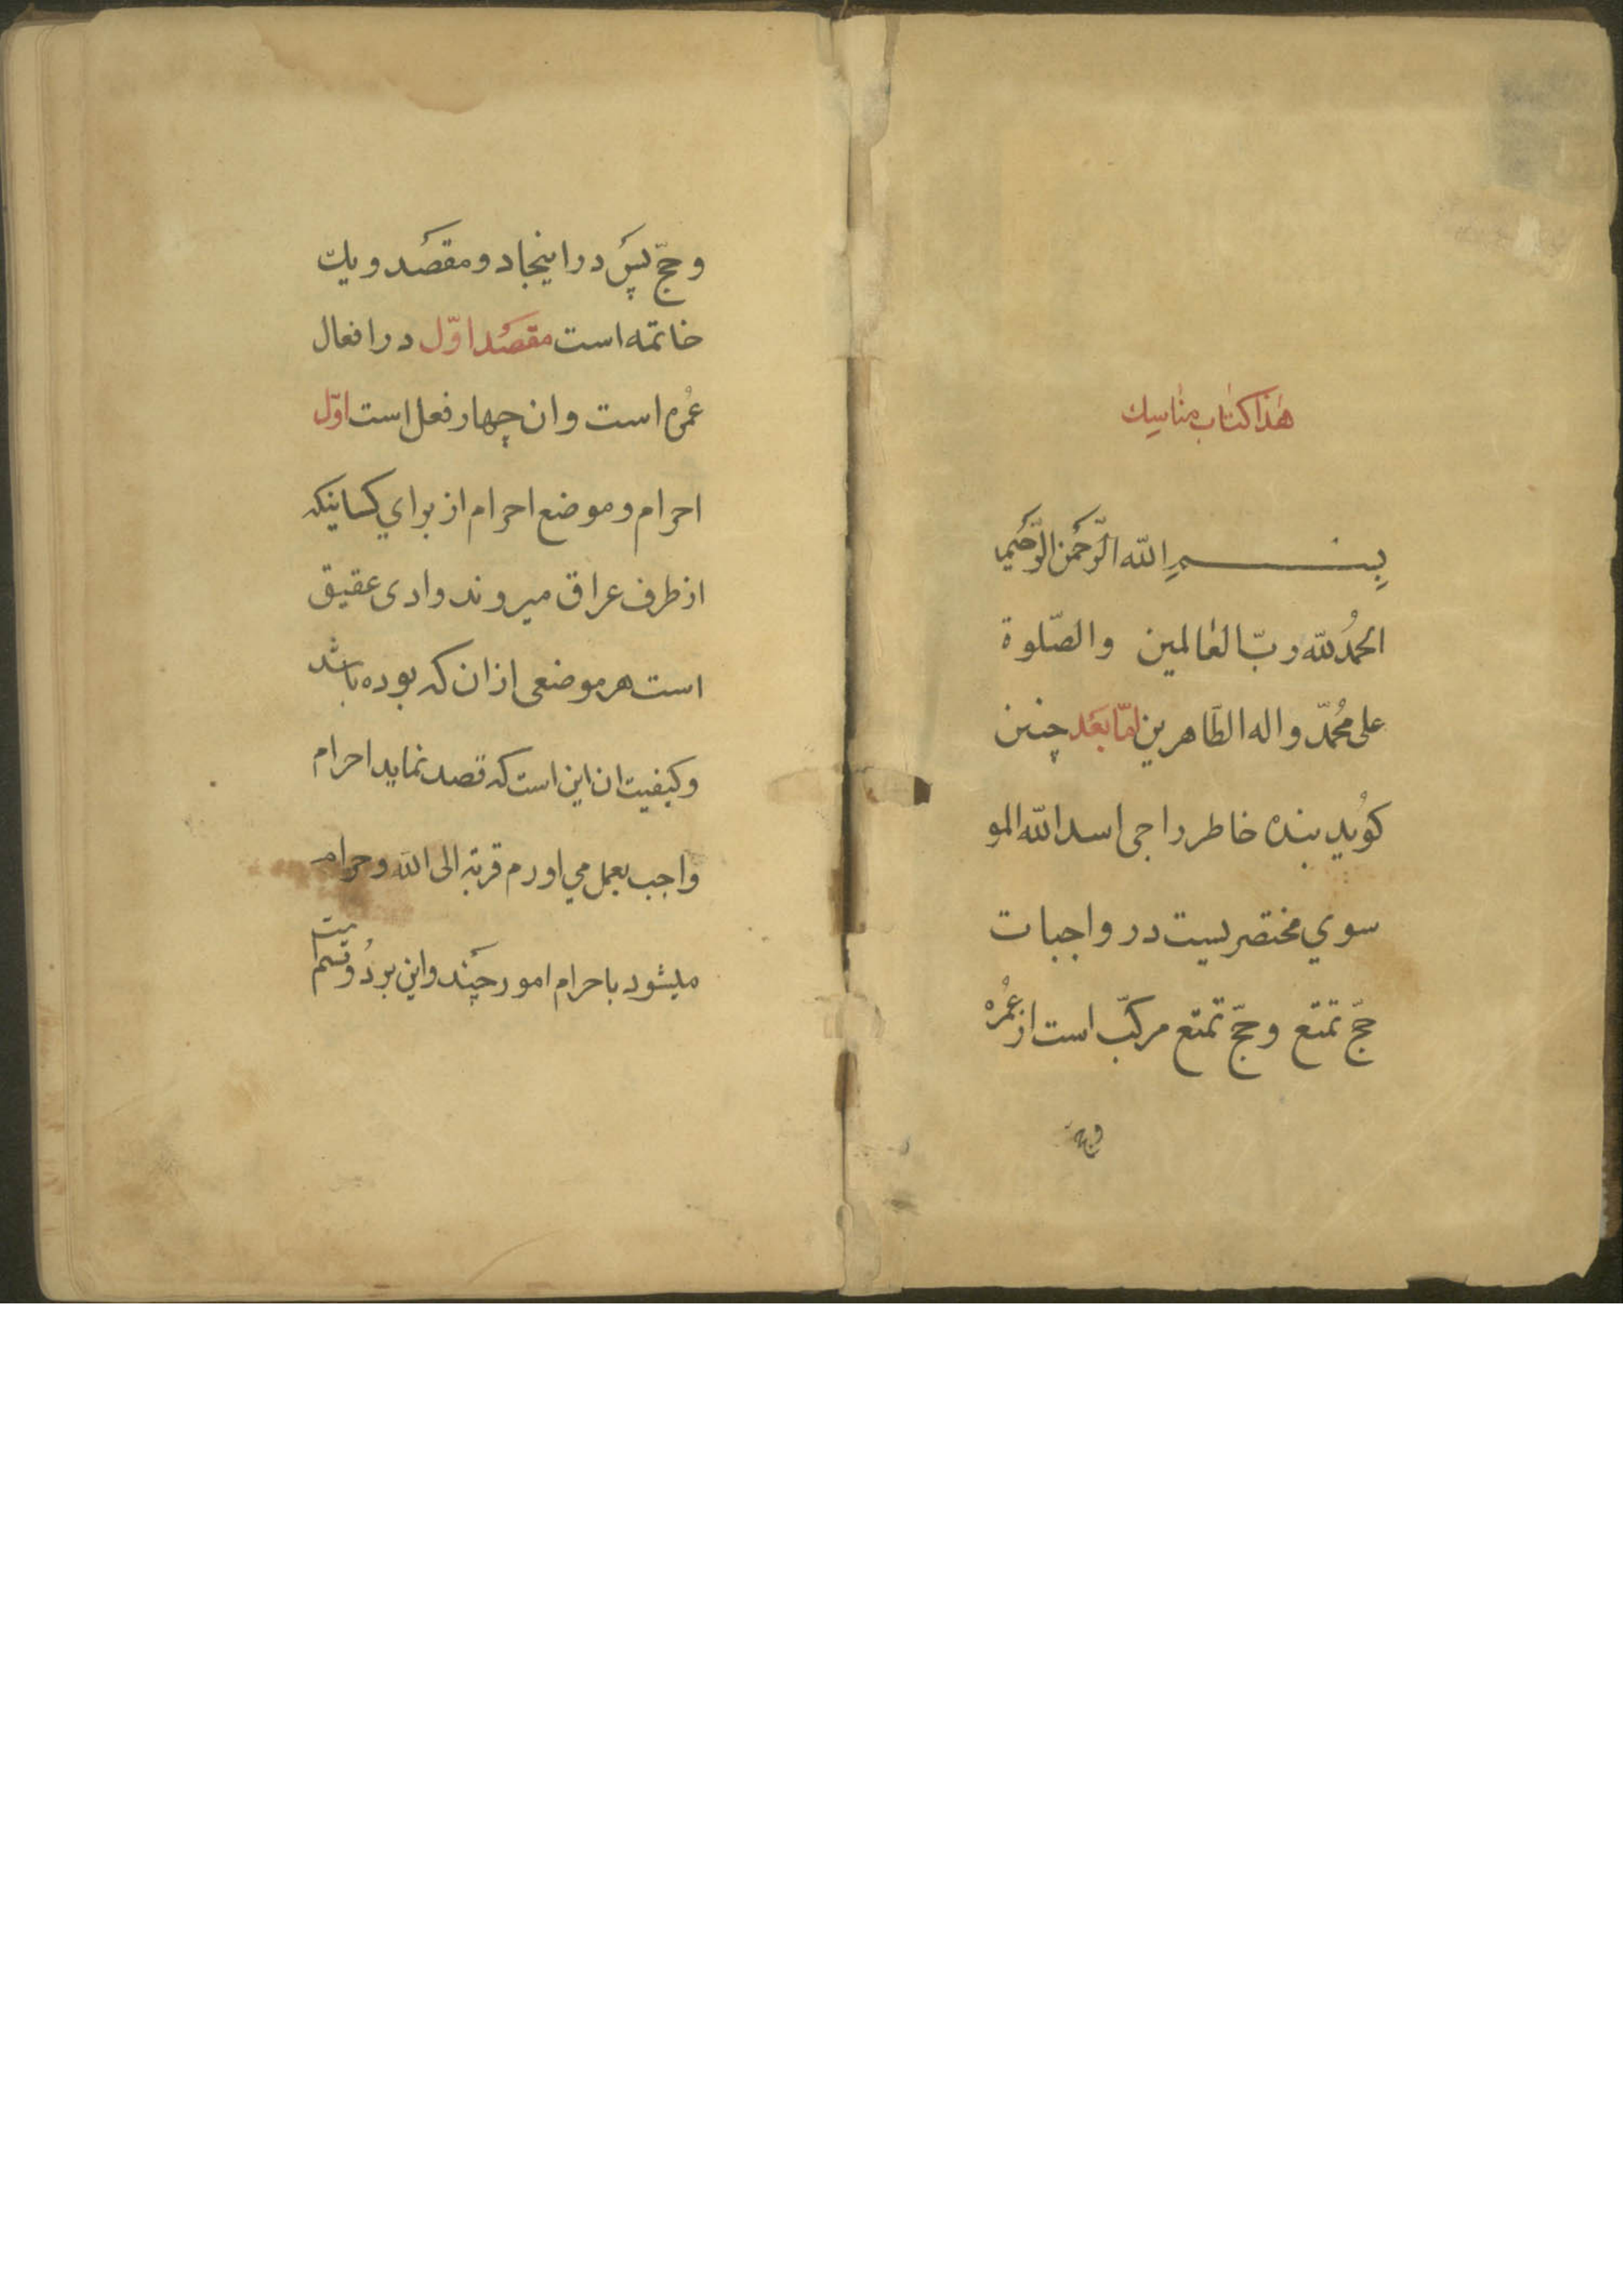 هٰذا كتاب مناسك
بِسم الله الرَّحمن الرَّحيم
الحمدُ للّه ربّ العالمين والصّلوة
على محُمّد واله الطّاهرين امّا بَعَد چنین
كوُید بنده خاطر راجی اسد الله المو
سوي مختصریست در واجبات
حجّ تمتع وحجّ تمتع مركّب است از عمُره
وحجّ
وحجّ پس در اینجا دو مقصَد ویك
خاتمه است مقصَد اوّل در افعال
عمُره است وان چهار فعل است اوّل
احرام وموضع احرام از براي كساینکه
از طرف عراق میروند وادی عقیق
است هر موضعی از ان که بوده باشد
وکیفیت ان این است که قصد نماید احرام
واجب بعمل می اورم قربة الی الله وحرام
میشود باحرام امور چَند واین بر دوُ قسم است